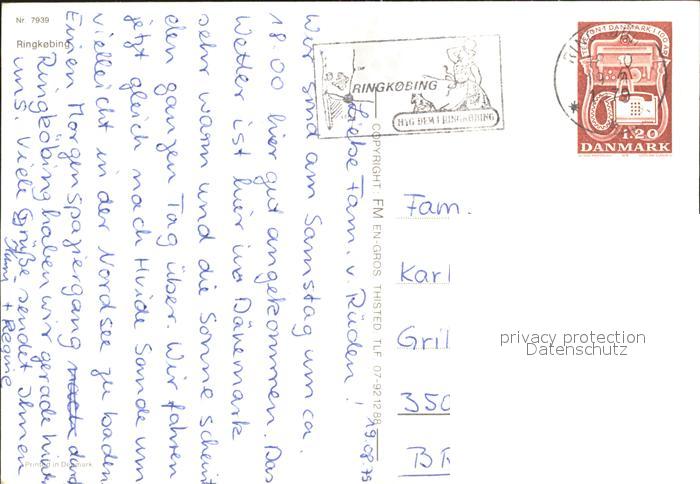 Nr. 7939
Ringkøbing
Liebe Fam. v. Rüden! 19.08.79
Wir sind am Samstag um ca.
18.00 hier gut angekommen. Das
Wetter ist hier in Dänemark
sehr warm und die Sonne scheint
den ganzen Tag über. Wir fahren
jetzt gleich nach Hvide Sande um
vielleicht in der Nordsee zu baden.
Einen Morgenspaziergang durch
Ringköbing haben wir gerade hinter
uns. Viele Grüße sendet Ihnen
Printed in Denmark
COPYRIGHT: FM EN-GROS THISTED TLF 07-921288
RINGKØBING
HYG DEM I RINGKØBING
TELEFONT I DANMARK I 100 ÅR
1.20
DANMARK
Fam.
Karl
Gril
350
BR
privacy protection
Datenschutz